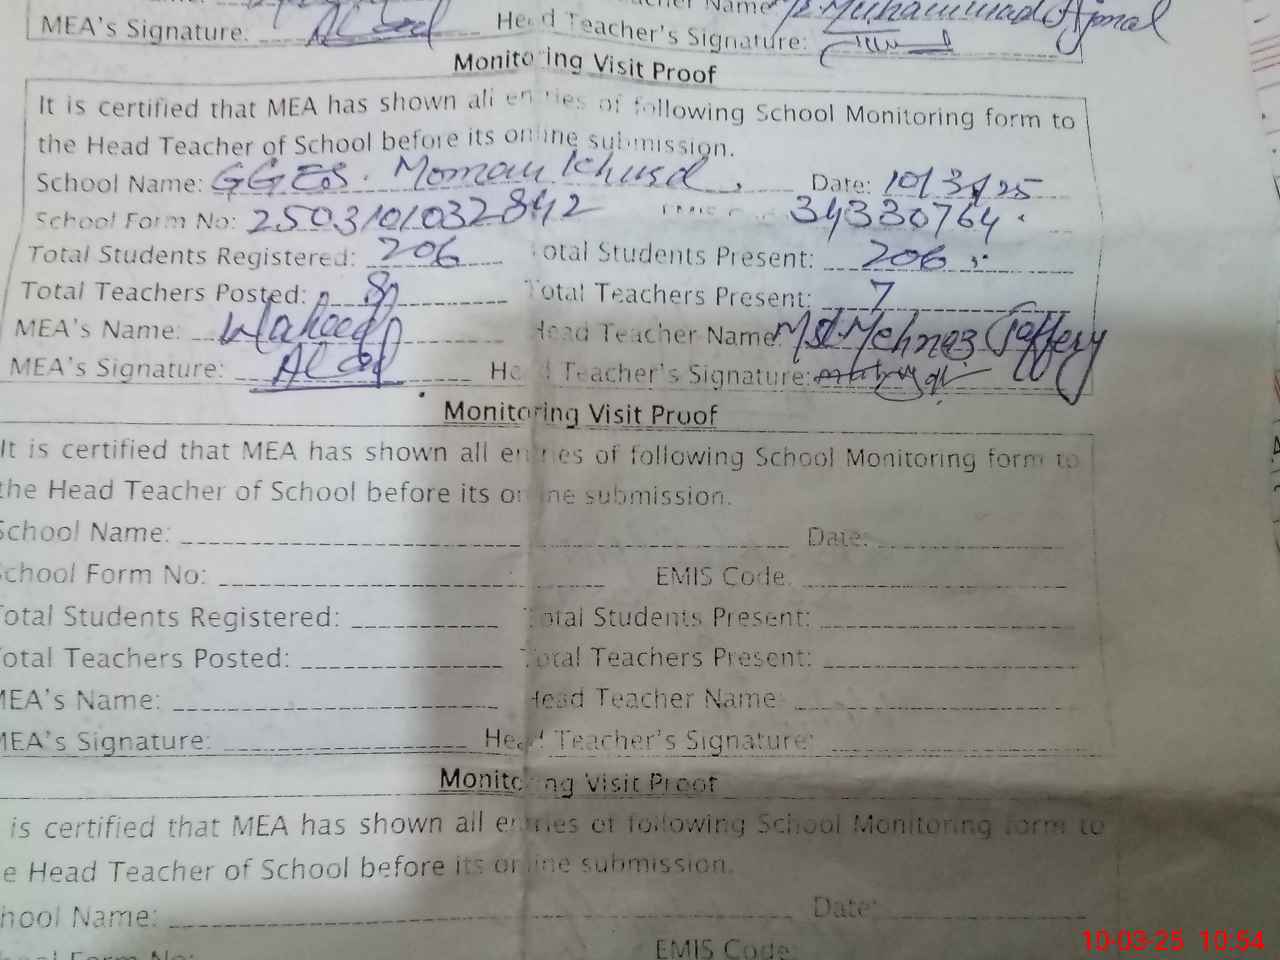 MEA's Signature. Head Teacher's Signature:
Name Muhammad Ajmal
Monitoring Visit Proof
It is certified that MEA has shown all entries of following School Monitoring form to
the Head Teacher of School before its online submission.
School Name: GGES. Moman Date: 10/3/25
School Form No: 2503101032842 EMIS 34330764
Total Students Registered: 206 Total Students Present: 206
Total Teachers Posted: 8 Total Teachers Present: 7
MEA's Name: Waheed Head Teacher Name: Mst. Mehnaz Jaffery
MEA's Signature: Head Teacher's Signature:
Monitoring Visit Proof
It is certified that MEA has shown all entries of following School Monitoring form to
the Head Teacher of School before its online submission.
School Name: Date:
School Form No: EMIS Code.
Total Students Registered: Total Students Present:
Total Teachers Posted: Total Teachers Present:
MEA's Name: Head Teacher Name:
MEA's Signature: Head Teacher's Signature:
Monitoring Visit Proof
is certified that MEA has shown all entries of following School Monitoring form to
e Head Teacher of School before its online submission.
hool Name: Date:
Form No: EMIS Code:
10-03-25 10:54